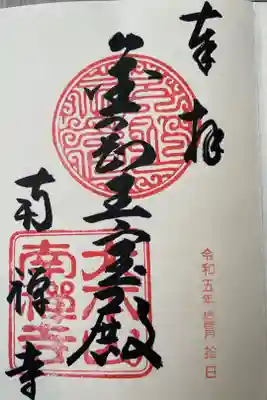 奉拝
金剛王宝殿
南禅寺
大本山
南禅寺
令和五年 月 拾 日